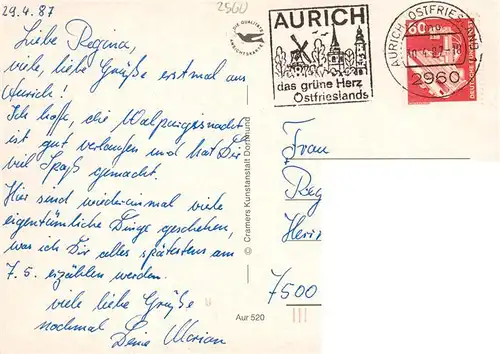 29.4.87
2560
Liebe Regina,
viele, liebe Grüße erstmal aus
Aurich!
Ich hoffe, die Walpurgisnacht
ist gut verlaufen und hat Dir
viel Spaß gemacht.
Hier sind wieder einmal viele
eigentümliche Dinge geschehen,
was ich Dir alles spätestens am
7.5. erzählen werde.
viele liebe Grüße
nochmal Deine Marian
© Cramers Kunstanstalt Dortmund
Aur 520
DIE QUALITÄTS
AURICH
das grüne Herz
Ostfrieslands
AURICH, OSTFRIESLAND 1
2960
60
DEUTSCHE BUNDESPOST
Frau
Reg
Herr
7500